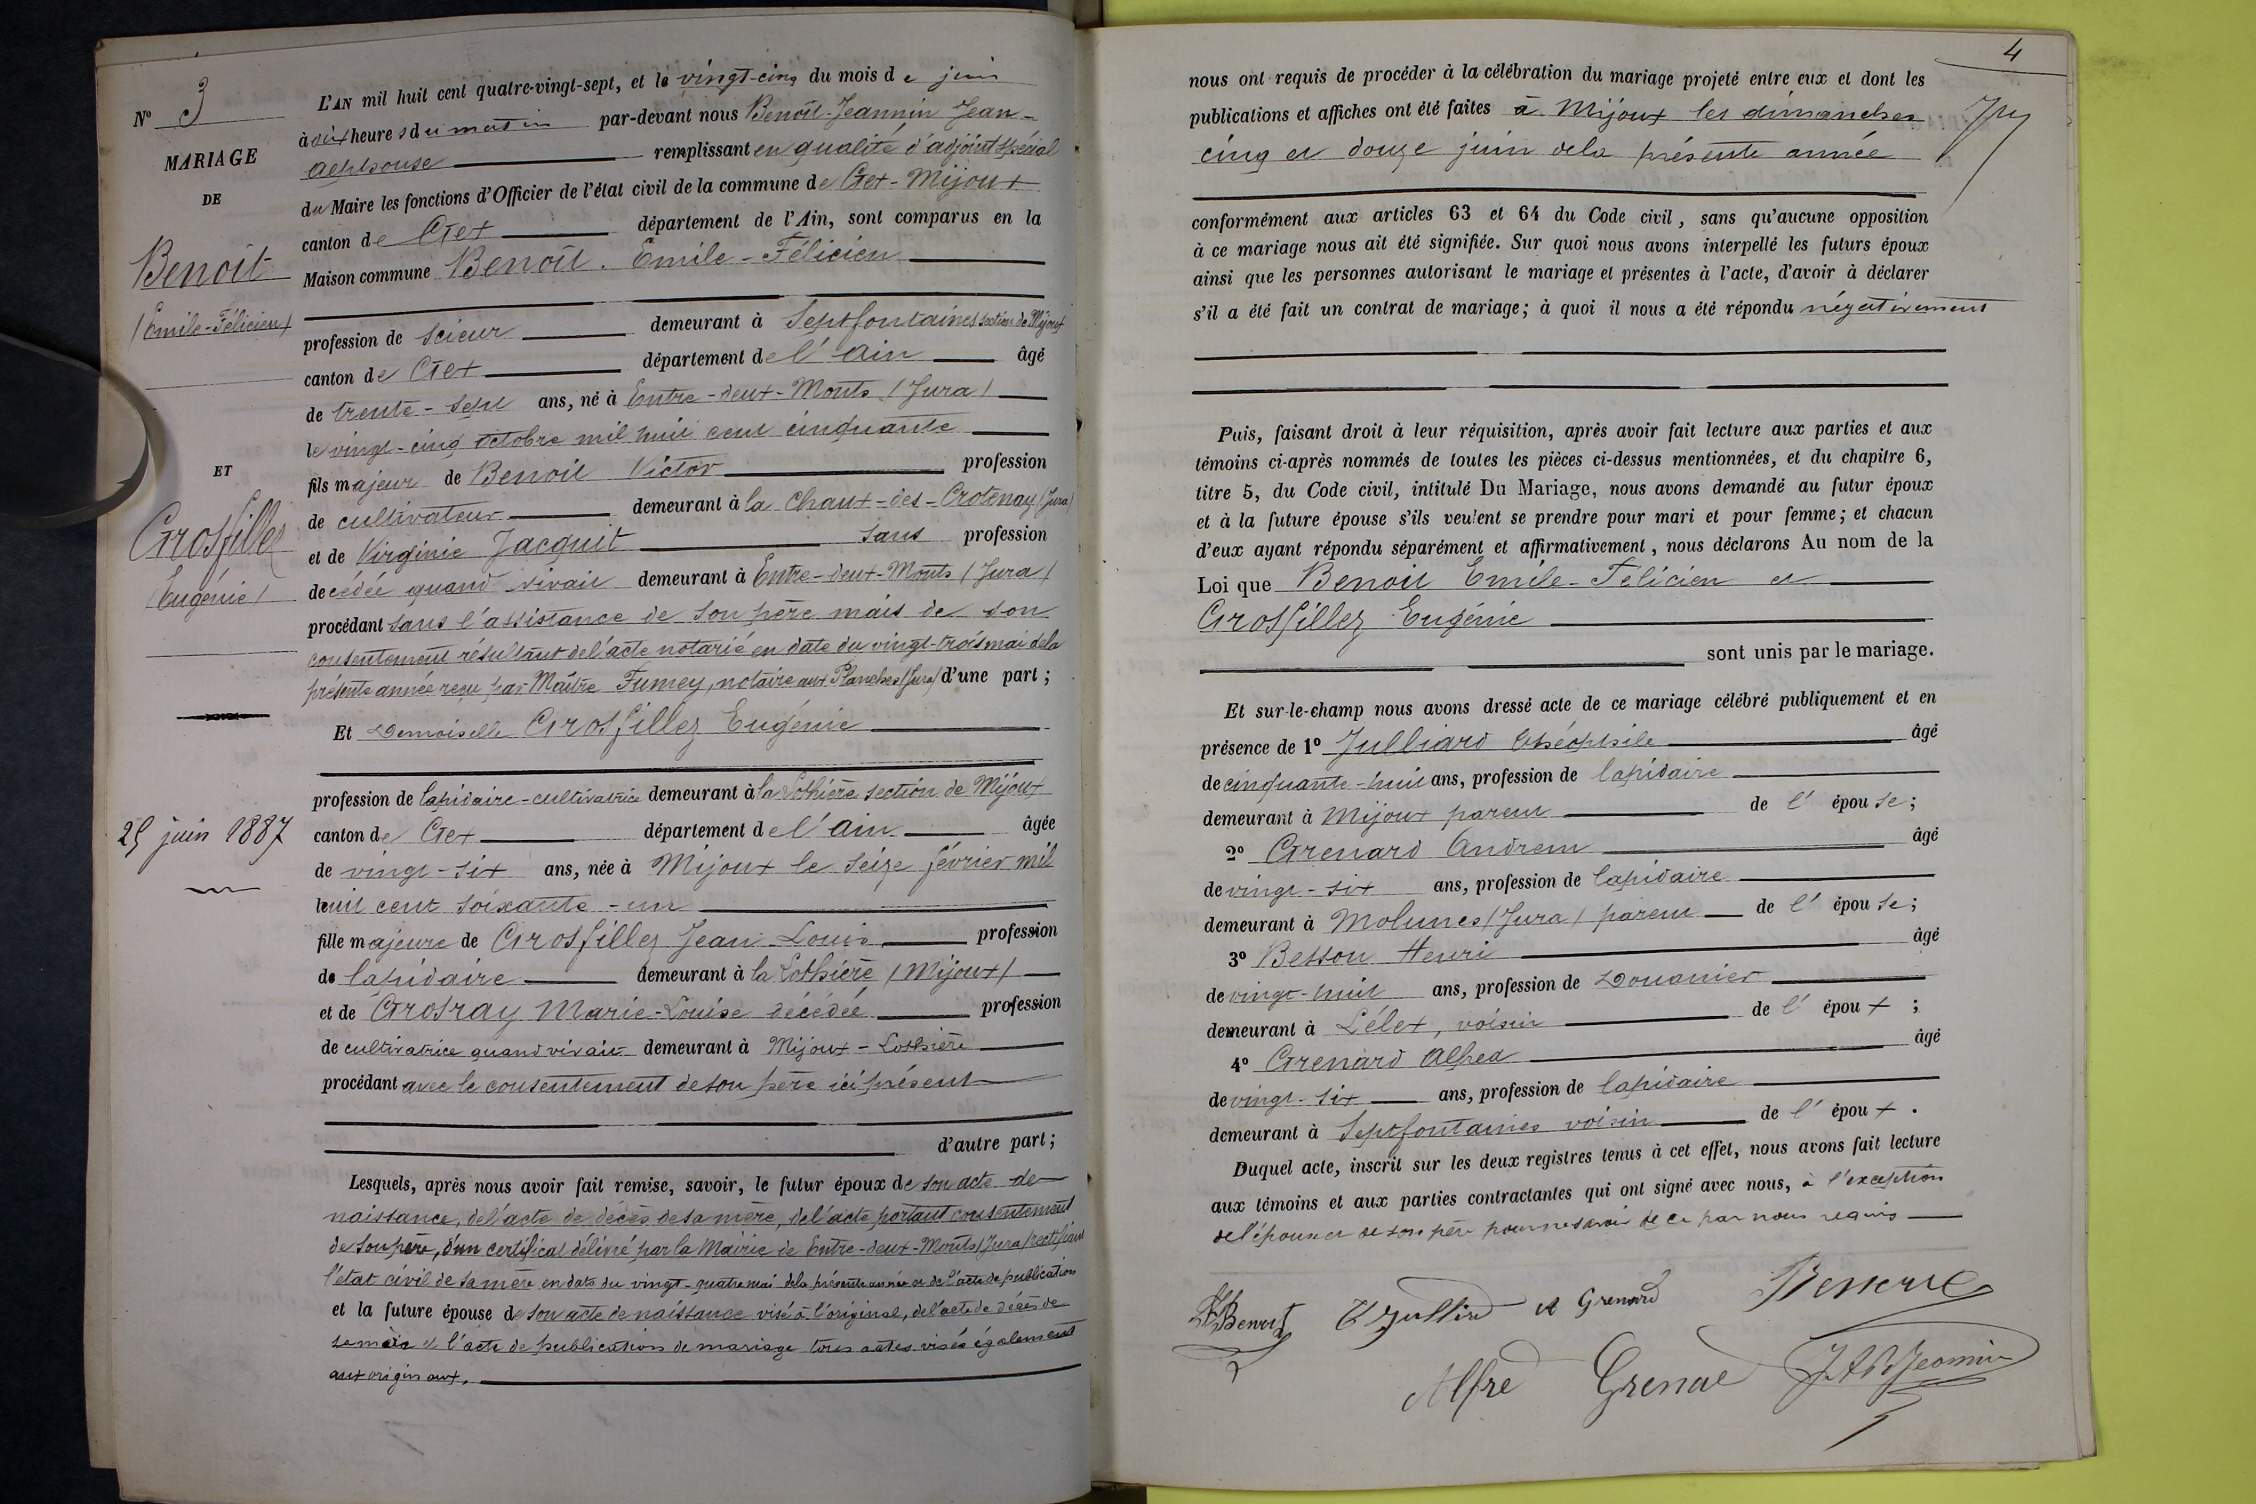 N° 3
MARIAGE
DE
Benoit
(Emile-Félicien)
ET
Grosfillez
(Eugénie)
25 juin 1887
L'AN mil huit cent quatre-vingt-sept, et le vingt-cinq du mois de juin
à dix heures du matin par-devant nous Benoît-Jeannin Jean-
Alphonse remplissant en qualité d'adjoint spécial
du Maire les fonctions d'Officier de l'état civil de la commune de Gex-Mijoux
canton de Gex département de l'Ain, sont comparus en la
Maison commune Benoît. Emile-Félicien
profession de scieur demeurant à Septfontaines section de Mijoux
canton de Gex département de l'Ain âgé
de trente-sept ans, né à Entre-deux-Monts (Jura)
le vingt-cinq octobre mil huit cent cinquante
fils majeur de Benoit Victor profession
de cultivateur demeurant à la Chaux-des-Crotenay (Jura)
et de Virginie Jacquit sans profession
decédée quand vivait demeurant à Entre-deux-Monts (Jura)
procédant sans l'assistance de son père mais de son
consentement résultant de l'acte notarié en date du vingt-trois mai dela
présente année reçu par Maître Fumey, notaire aux Planches (Jura) d'une part;
Et Demoiselle Grosfillez Eugénie
profession de lapidaire-cultivatrice demeurant à la Lothière section de Mijoux
canton de Gex département de l'Ain âgée
de vingt-six ans, née à Mijoux le seize février mil
huit cent soixante-un
fille majeure de Grosfillez Jean-Louis profession
de lapidaire demeurant à la Lothière (Mijoux)
et de Grosray Marie-Louise décédée profession
de cultivatrice quand vivait demeurant à Mijoux-Lothière
procédant avec le consentement de son père ici présent
d'autre part;
Lesquels, après nous avoir fait remise, savoir, le futur époux de son acte de
naissance, de l'acte de décès de sa mère, de l'acte portant consentement
de son père, d'un certificat délivré par la Mairie de Entre-deux-Monts (Jura) rectifiant
l'état civil de sa mère en date du vingt-quatre mai dela présente année et de l'acte de publication
et la future épouse de son acte de naissance visé à l'original, de l'acte de décès de
sa mère et l'acte de publication de mariage tous actes visés également
aux originaux.
4
nous ont requis de procéder à la célébration du mariage projeté entre eux et dont les
publications et affiches ont été faites à Mijoux les dimanches
cinq et douze juin dela présente année
conformément aux articles 63 et 64 du Code civil, sans qu'aucune opposition
à ce mariage nous ait été signifiée. Sur quoi nous avons interpellé les futurs époux
ainsi que les personnes autorisant le mariage et présentes à l'acte, d'avoir à déclarer
s'il a été fait un contrat de mariage; à quoi il nous a été répondu négativement
Puis, faisant droit à leur réquisition, après avoir fait lecture aux parties et aux
témoins ci-après nommés de toutes les pièces ci-dessus mentionnées, et du chapitre 6,
titre 5, du Code civil, intitulé Du Mariage, nous avons demandé au futur époux
et à la future épouse s'ils veulent se prendre pour mari et pour femme; et chacun
d'eux ayant répondu séparément et affirmativement, nous déclarons Au nom de la
Loi que Benoit Emile-Félicien et
Grosfillez Eugénie
sont unis par le mariage.
Et sur-le-champ nous avons dressé acte de ce mariage célébré publiquement et en
présence de 1° Julliard Théophile âgé
de cinquante-huit ans, profession de lapidaire
demeurant à Mijoux parent de l'épouse;
2° Grenard Andrem âgé
de vingt-six ans, profession de lapidaire
demeurant à Molunes (Jura) parent de l'épouse;
3° Besson Henri âgé
de vingt-huit ans, profession de Douanier
demeurant à Lélex, voisin de l'époux;
4° Grenard Alfred âgé
de vingt-six ans, profession de lapidaire
demeurant à Septfontaines voisin de l'époux.
Duquel acte, inscrit sur les deux registres tenus à cet effet, nous avons fait lecture
aux témoins et aux parties contractantes qui ont signé avec nous, à l'exception
de l'épouse et de son père pour ne savoir de ce par nous requis
Benoit T Julliard A Grenard
Alfre Grenae JAB Jeannin